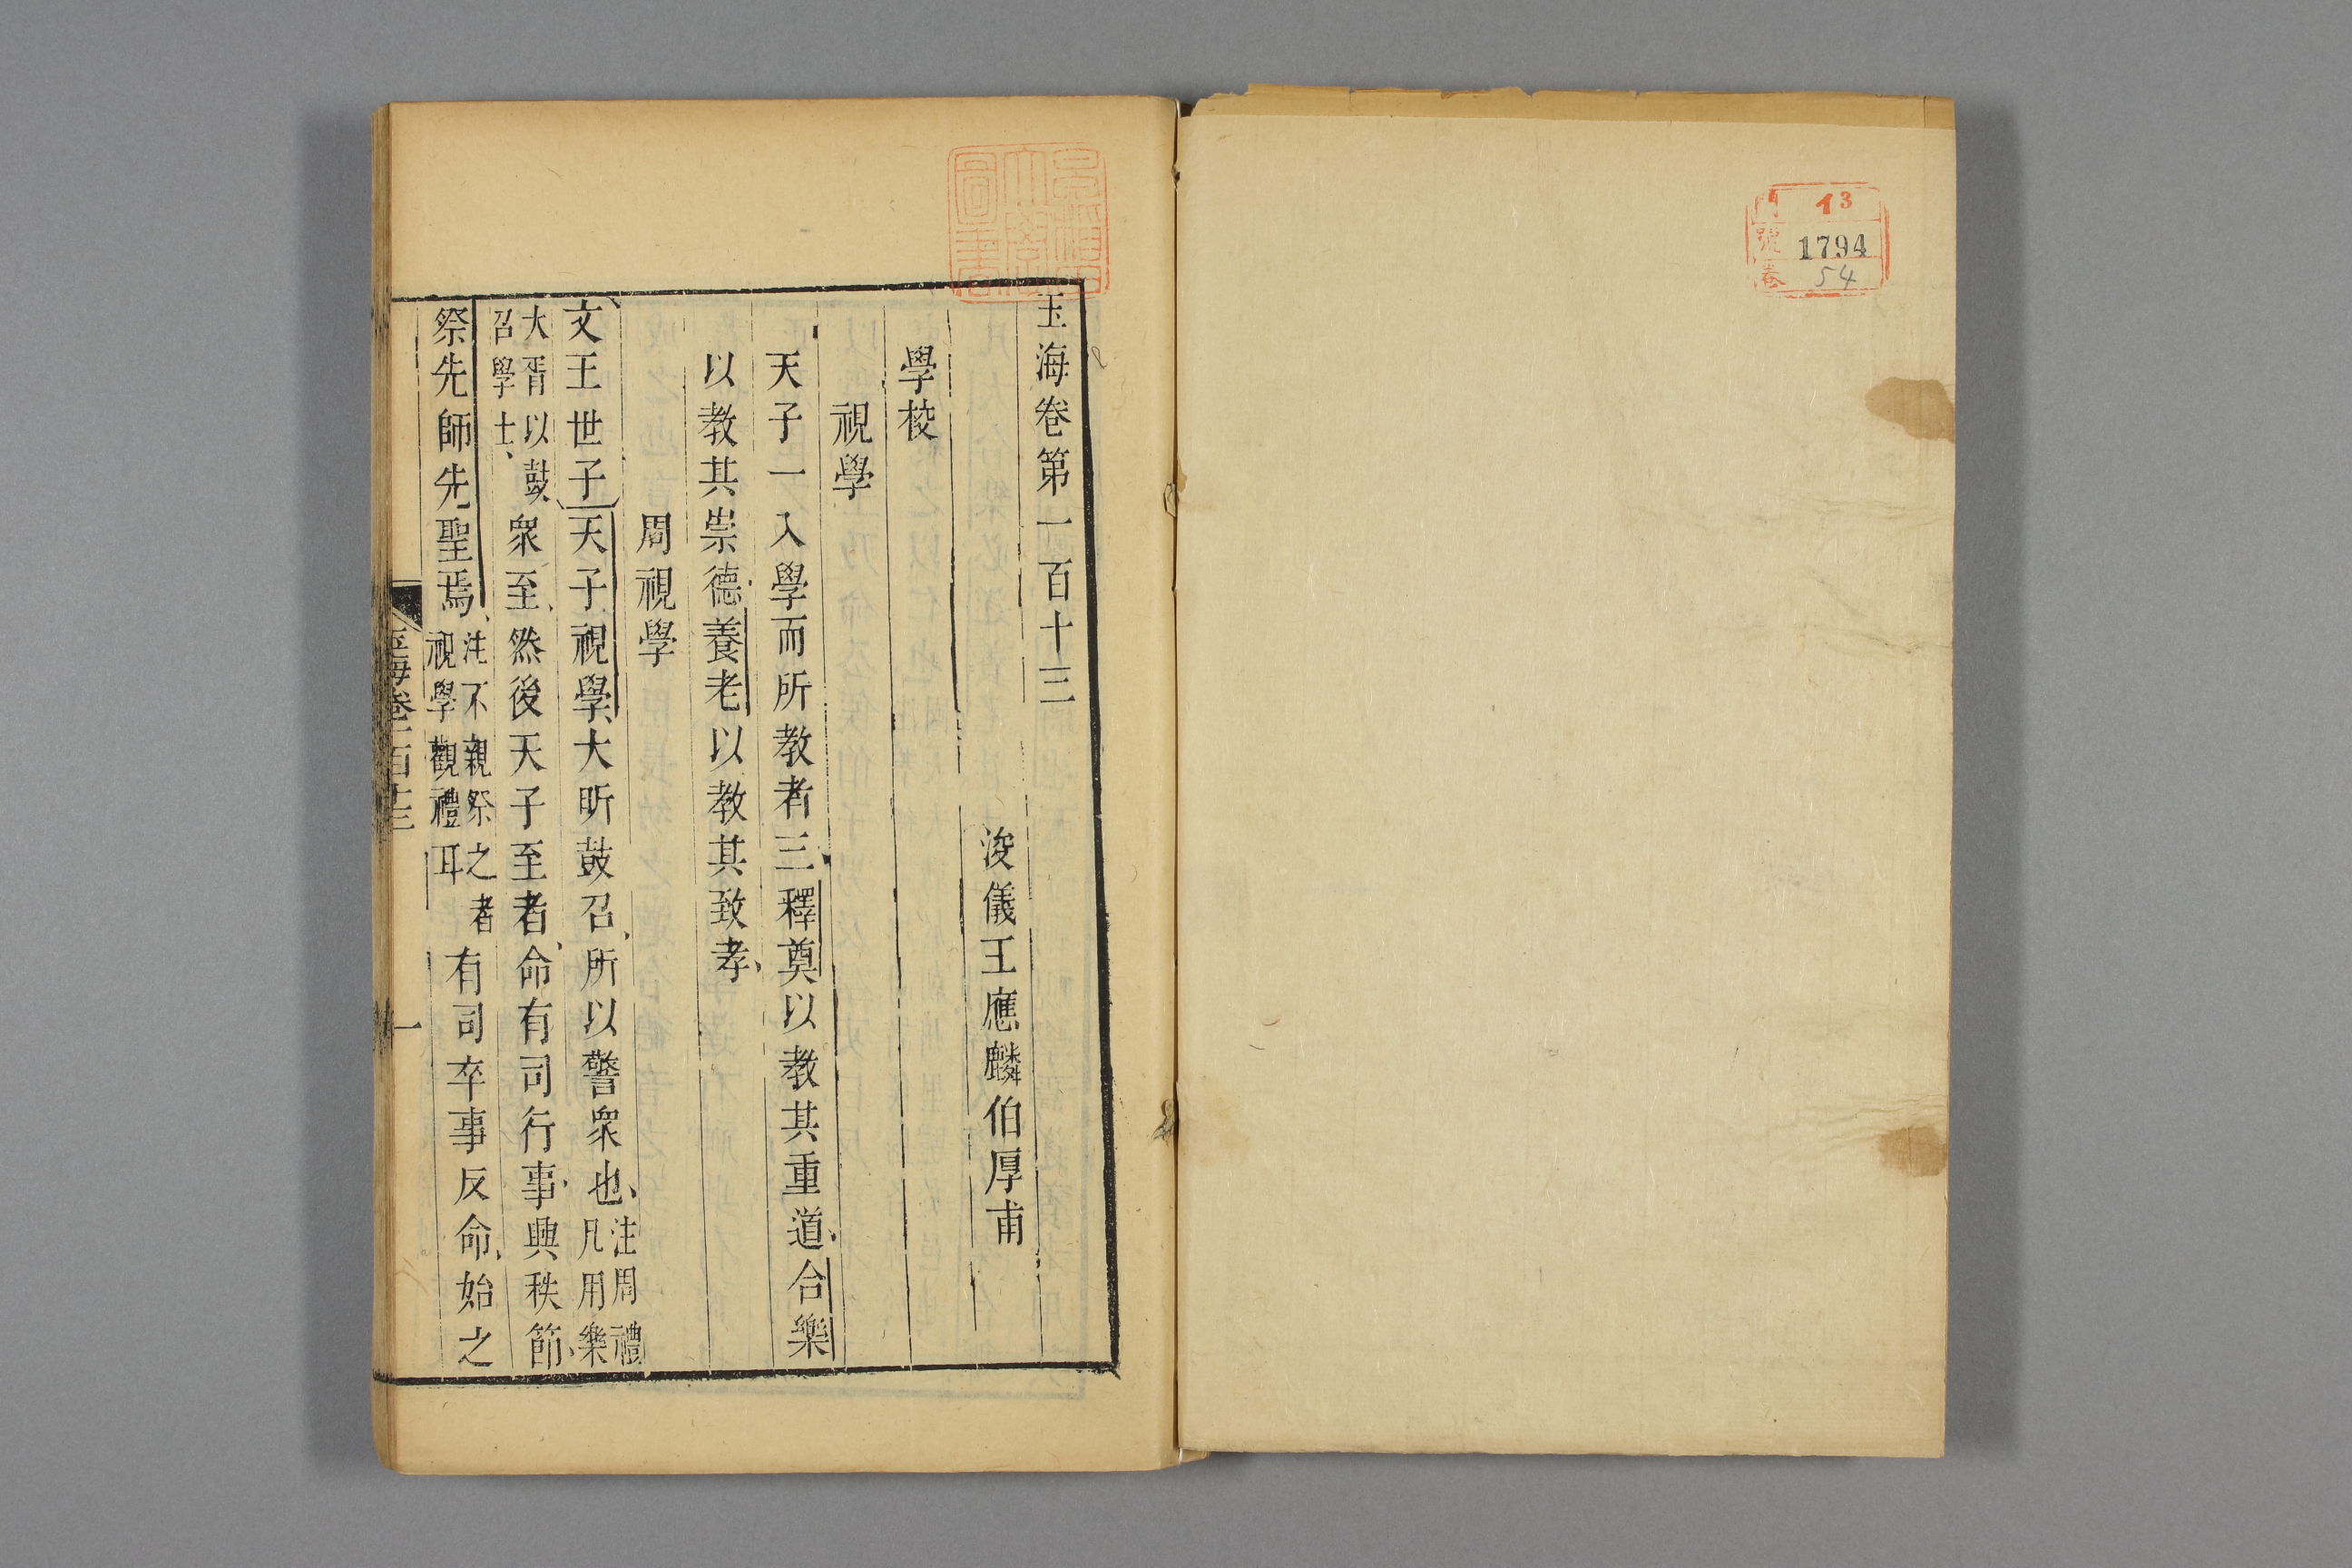 門 13
號 1794
卷 54
玉海卷第一百十三
浚儀王應麟伯厚甫
學校
視學
天子一入學而所教者三釋奠以教其重道合樂
以教其崇德養老以教其致孝
周視學
文王世子天子視學大昕鼓召所以警衆也注周禮凡用樂
大胥以鼓召學士衆至然後天子至者命有司行事興秩節
祭先師先聖焉注不親祭之者視學觀禮耳有司卒事反命始之
玉海卷一百十三
一